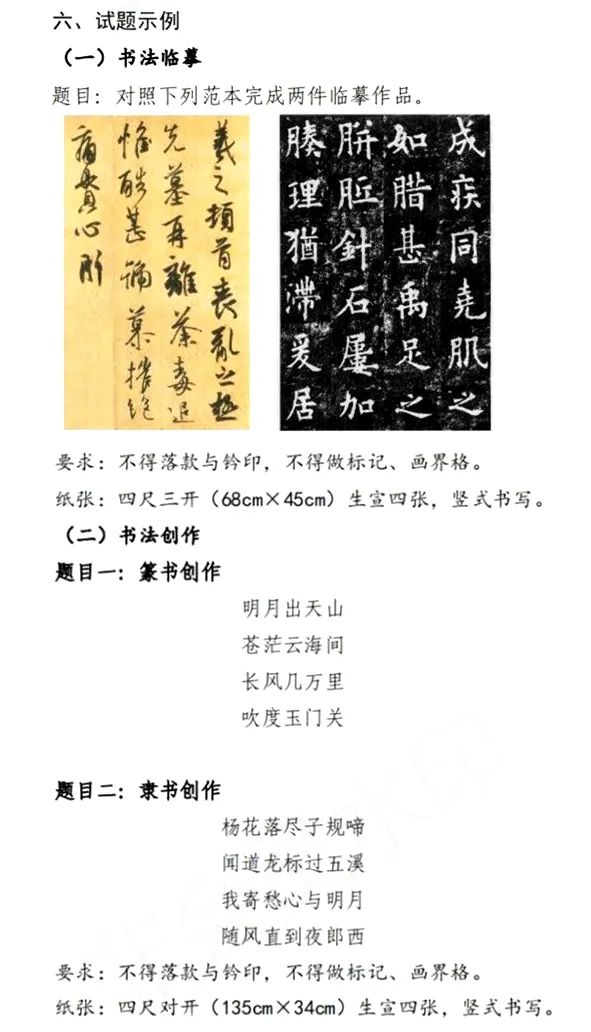 六、试题示例
（一）书法临摹
题目：对照下列范本完成两件临摹作品。
羲之顿首丧乱之极
先墓再離荼毒追
惟酷甚號慕摧絶
痛貫心肝
成疾同堯肌之
如腊甚禹足之
胼胝針石屡加
腠理猶滞爰居
要求：不得落款与钤印，不得做标记、画界格。
纸张：四尺三开（68cm×45cm）生宣四张，竖式书写。
（二）书法创作
题目一：篆书创作
明月出天山
苍茫云海间
长风几万里
吹度玉门关
题目二：隶书创作
杨花落尽子规啼
闻道龙标过五溪
我寄愁心与明月
随风直到夜郎西
要求：不得落款与钤印，不得做标记、画界格。
纸张：四尺对开（135cm×34cm）生宣四张，竖式书写。